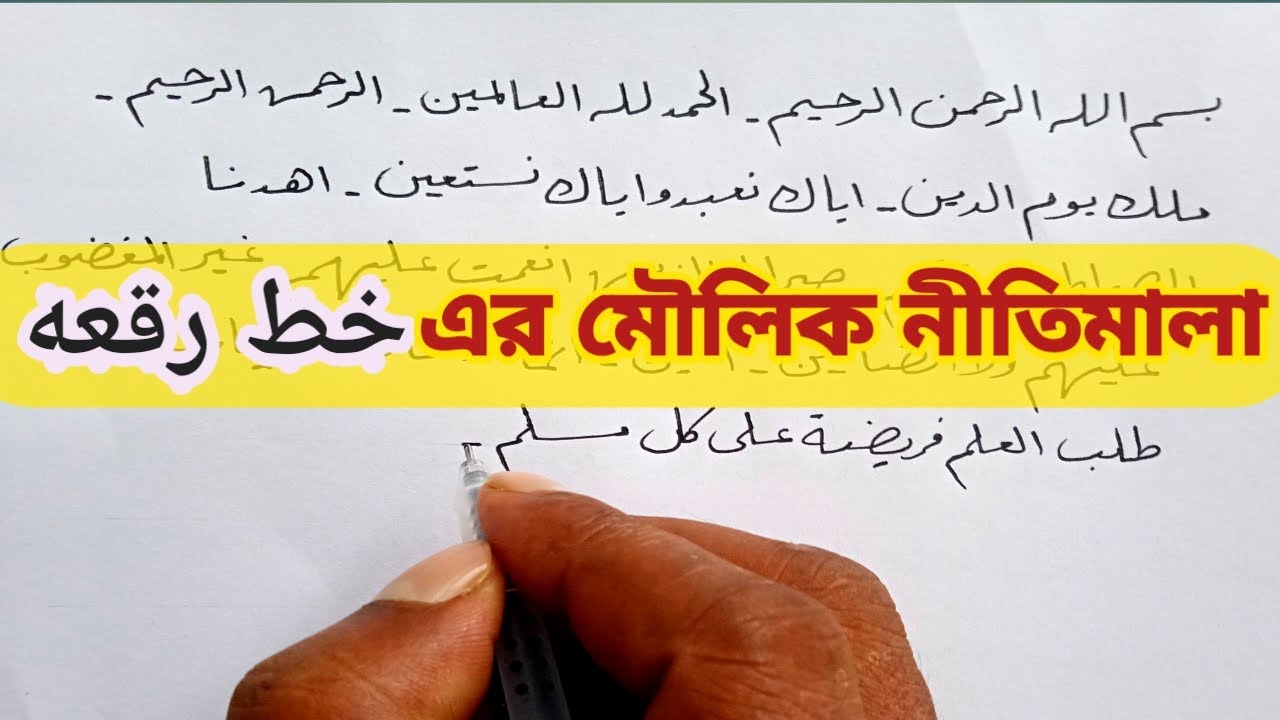 بسم الله الرحمن الرحيم - الحمد لله العالمين - الرحمن الرحيم -
ملك يوم الدين - اياك نعبد واياك نستعين - اهدنا
انعمت عليهم غير المغضوب
خط رقعه এর মৌলিক নীতিমালা
عليهم ولا الضالين - امين -
طلب العلم فريضة على كل مسلم -